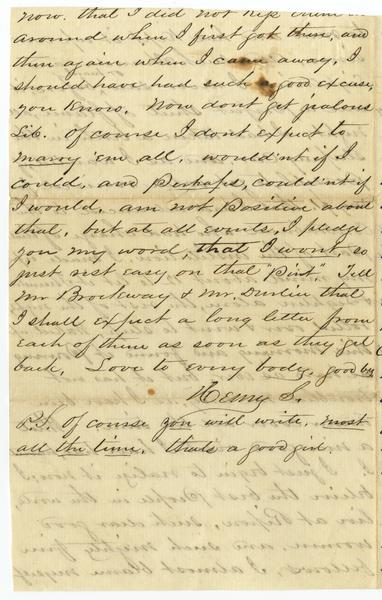 now. that I did not kiss them all
around when I first got there, and
then again when I came away, I
should have had such a good excuse,
you know. Now dont get jealous
Lib. of course I dont expect to
marry 'em all. would'nt if I
could, and Perhaps, could'nt if
I would, am not Positive about
that, but at all events, I pledge
you my word, that I wont, so
just rest easy on that "pint". Tell
Mr Brockway & Mr. Durlin that
I shall expect a long letter from
each of them as soon as they get
back. Love to every body, good by
Henry S.
P.S. Of course you will write, most
all the time, thats a good girl.